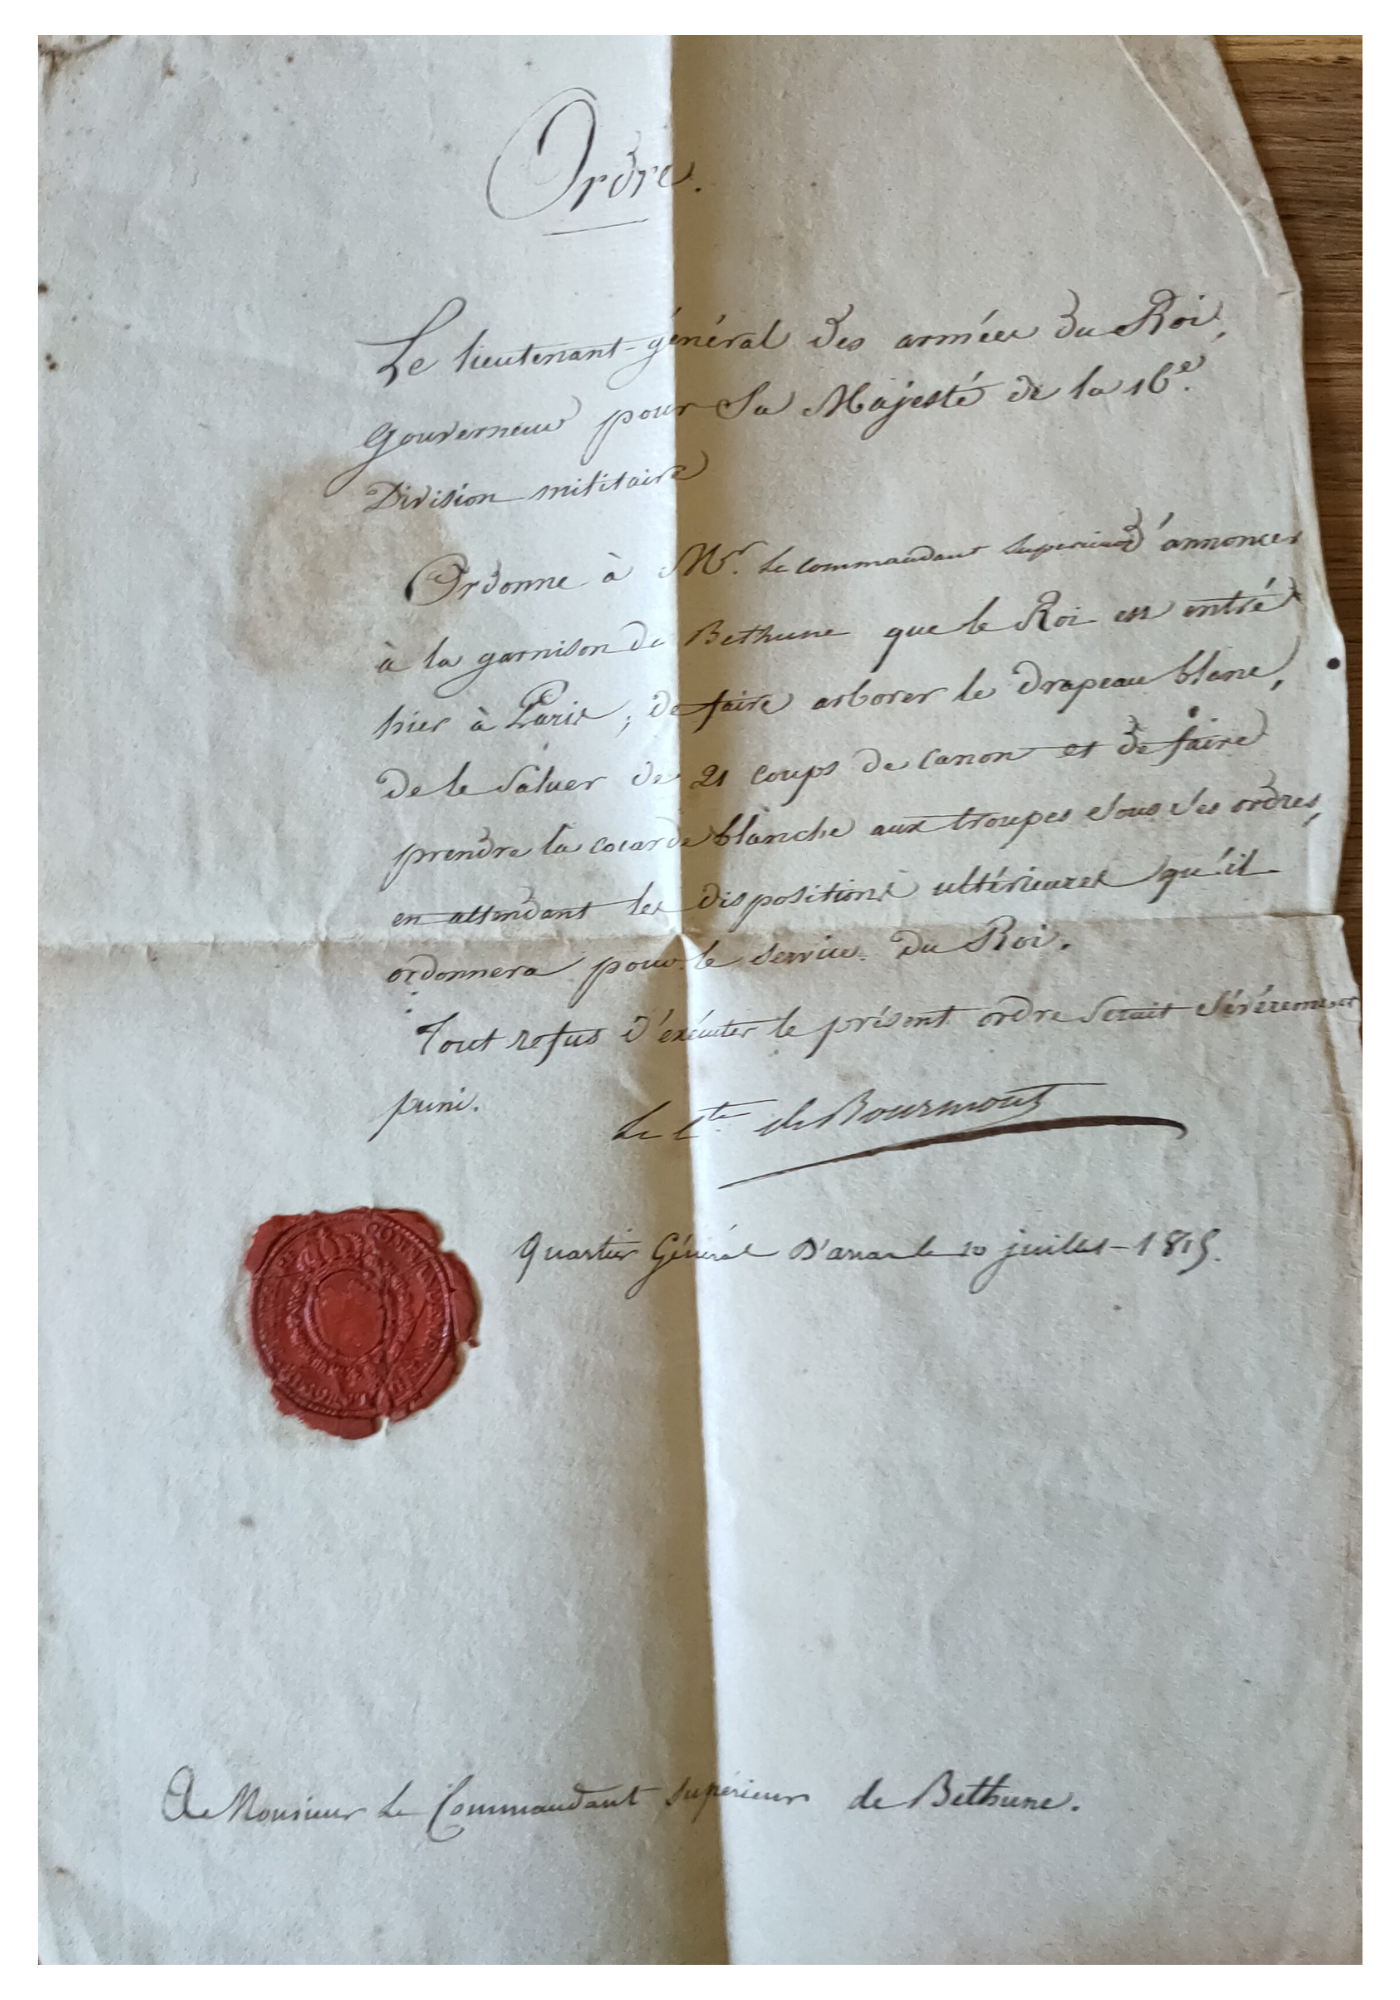 Ordre.
Le lieutenant-général des armées du Roi,
Gouverneur pour Sa Majesté de la 16e.
Division militaire
Ordonne à Mr. le commandant superieur d'annoncer
à la garnison de Bethune que le Roi est entré
hier à Paris, de faire arborer le drapeau blanc,
de le saluer de 21 coups de canon et de faire
prendre la cocarde blanche aux troupes sous ses ordres,
en attendant les dispositions ultérieures qu'il
ordonnera pour le service du Roi.
Tout refus d'exécuter le présent ordre serait sévèrement
puni.
Le Cte de Bourmont
Quartier Général d'arras le 10 juillet 1815.
A Monsieur Le Commandant supérieur de Bethune.